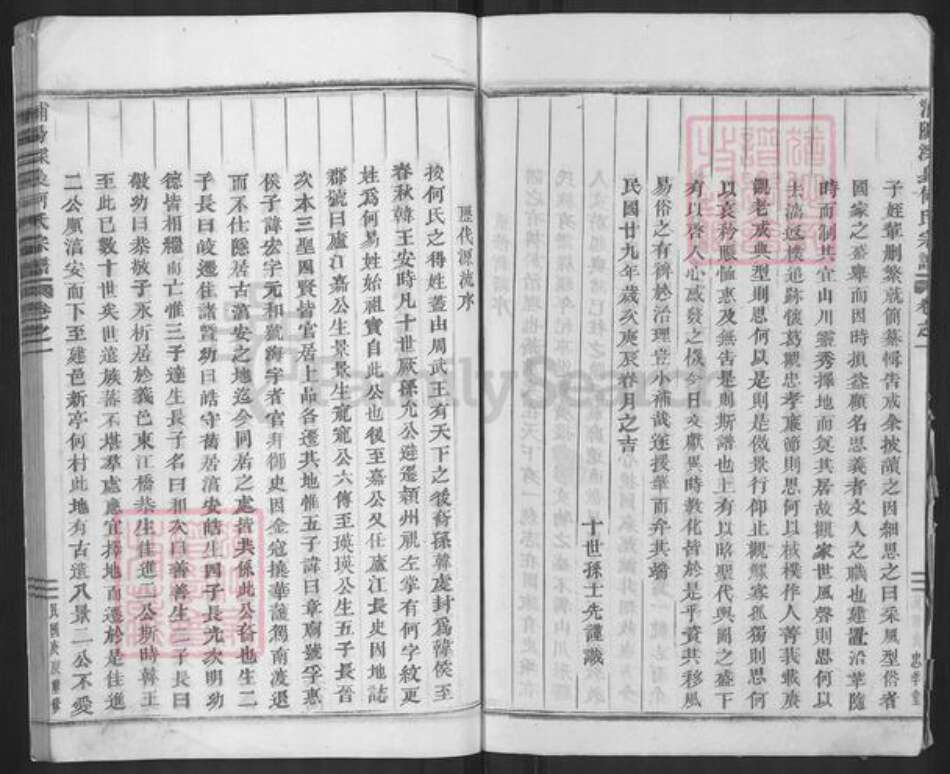 子姪輩刪繁就簡纂輯告成余披讀之因細思之曰采風型俗者
國家之盛舉而因時損益顧名思義者文人之職也建置沿革隨
時而制其宜山川靈秀擇地而奠其居故觀家世風聲則思何以
主滴起懷追踪懷葛觀忠孝廉節則思何以棫樸作人菁莪載庚
觀老成典型則思何以是則是傚景行仰止觀鰥寡孤獨則思何
以哀矜賑恤惠及無告是則斯譜也上有以昭聖代輿圖之盛下
有以啓人心感發之機今日文獻異時教化皆於是乎賚其移風
易俗之有裨於治理豈小補哉遂援筆而弁其端
民國廿九年歲次庚辰春月之吉
十世孫士先謹識
歷代源流序
按何氏之得姓蓋由周武王有天下之後裔孫韓虔封為韓侯至
春秋韓王安時凡十世厥孫允公遊邐穎州視左掌有何字紋更
姓為何易姓始祖實自此公也後至嘉公又任廬江長史因地誌
郡號曰廬江嘉公生景景生寬寬公六傳至瑛瑛公生五子長晉
次本三聖四賢皆官居上品各遷其地惟五子諱曰章廟號孚惠
侯子諱宏字元和號海字者官拜御史因金寇撓華護駕南渡退
而不仕隱居古湻安之地迄今同居之處皆其係此公裔也生二
子長曰岐遷住諸暨幼曰皓守舊居湻安皓生四子長允次明幼
德皆相繼而亡惟三子達生長子名曰和次曰善善生二子長曰
敬幼曰恭敬子永析居於義邑東江橋恭生佳進二公斯時韓王
至此已數十世矣世遠族蕃不堪羣處應宜擇地而遷於是佳進
二公順湻安而下至建邑新亭何村此地有古遺八景二公不愛
浦陽深裊何氏宗譜 卷之一
民國庚辰重修
忠孝堂
FamilySearch